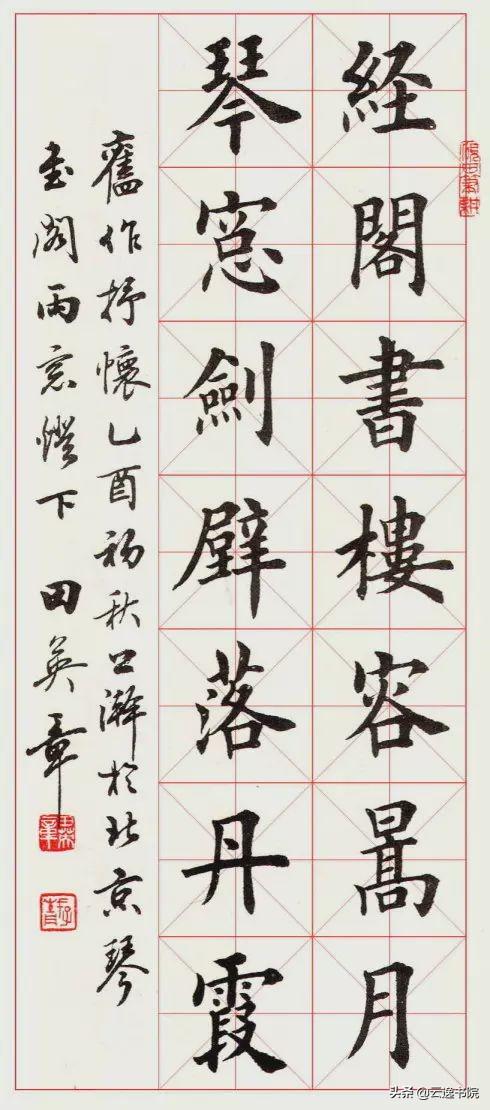 経閣書樓容暠月
琴窓劍壁落丹霞
舊作抒懷乙酉初秋於北京琴
書閣雨窓燈下田英章
头条 @云逸书院